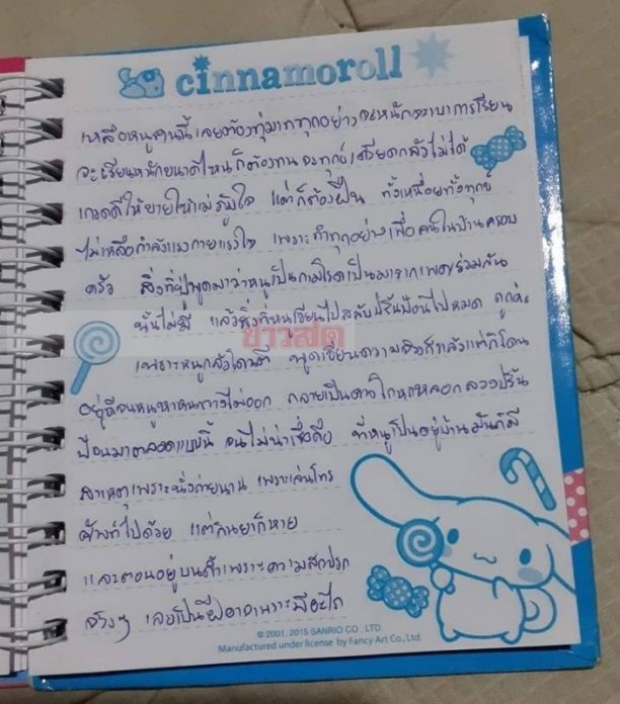 cinnamoroll
เหลือหนูคนนี้ เลยต้องทุ่มเททุกอย่าง จะหนัก การเรียน
จะเรียนหนัก ไหนก็ต้องทน จะทุกข์ เครียดกลัวไม่ได้
เกรดดีให้ยายให้แม่ภูมิใจ แต่ก็ต้องฝืน ทั้งเหนื่อยทั้งทุกข์
ไม่เหลือกำลังแรงกายแรงใจ เพราะทำทุกอย่างเพื่อคนในบ้านครอบ
ครัว สิ่งที่ปู่พูดมาว่าหนูเป็นกามโรคเป็นมาจากเพศร่วมกัน
นั้นไม่มี แล้วสิ่งที่หนูเขียนไปสลับปรับป้อนไปหมด ถูกค่ะ
ข่าวสด
เพราะหนูกลัวโดนตี พูดเขียนความจริงก็แล้วแต่ก็โดน
อยู่ดีจนหนูหาหนทางไม่ออก กลายเป็นคนโกหกหลอกลวงปรับ
ป้อนมาตลอดแบบนี้ จนไม่น่าเชื่อถือ ที่หนูเป็นอยู่บ้านมันก็มี
สาเหตุเพราะนั่งถ่ายนาน เพราะเล่นโทร
ศัพท์ไปด้วย แต่กินยาก็หาย
และตอนอยู่บน เพราะความสกปรก
จริงๆ เลยเป็น
© 2001, 2015 SANRIO CO., LTD.
Manufactured under license by Fancy Art Co., Ltd.